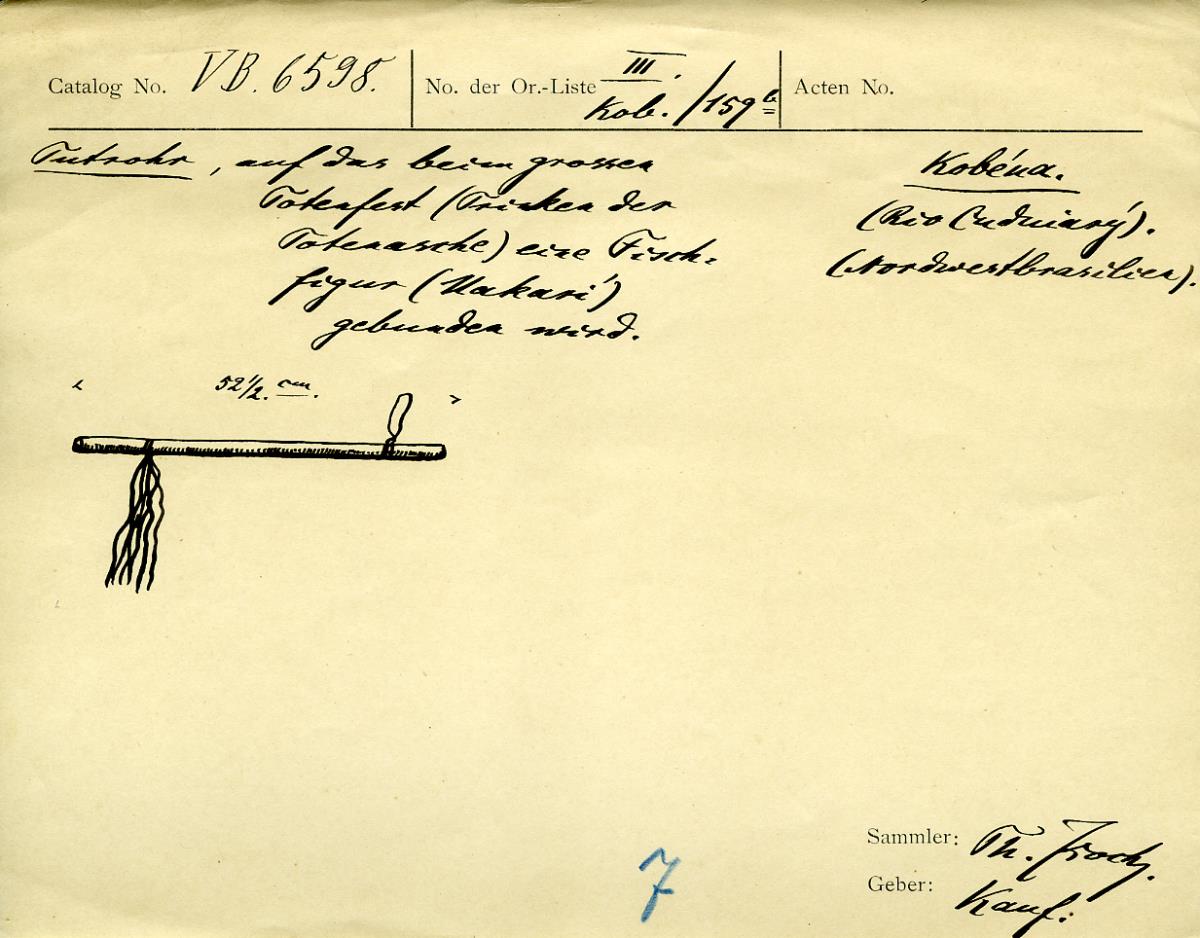 Catalog No. VB. 6598.
No. der Or.-Liste III.
Kob. /159b
Acten No.
Tutrohr, auf das beim grossen
Totenfest (Trinken der
Totenasche) eine Fisch-
figur (Uakarí)
gebunden wird.
Kobéua.
(Rio Cuduiarý).
(Nordwestbrasilien).
52 1/2. cm.
7
Sammler: Th. Koch.
Geber: Kauf.